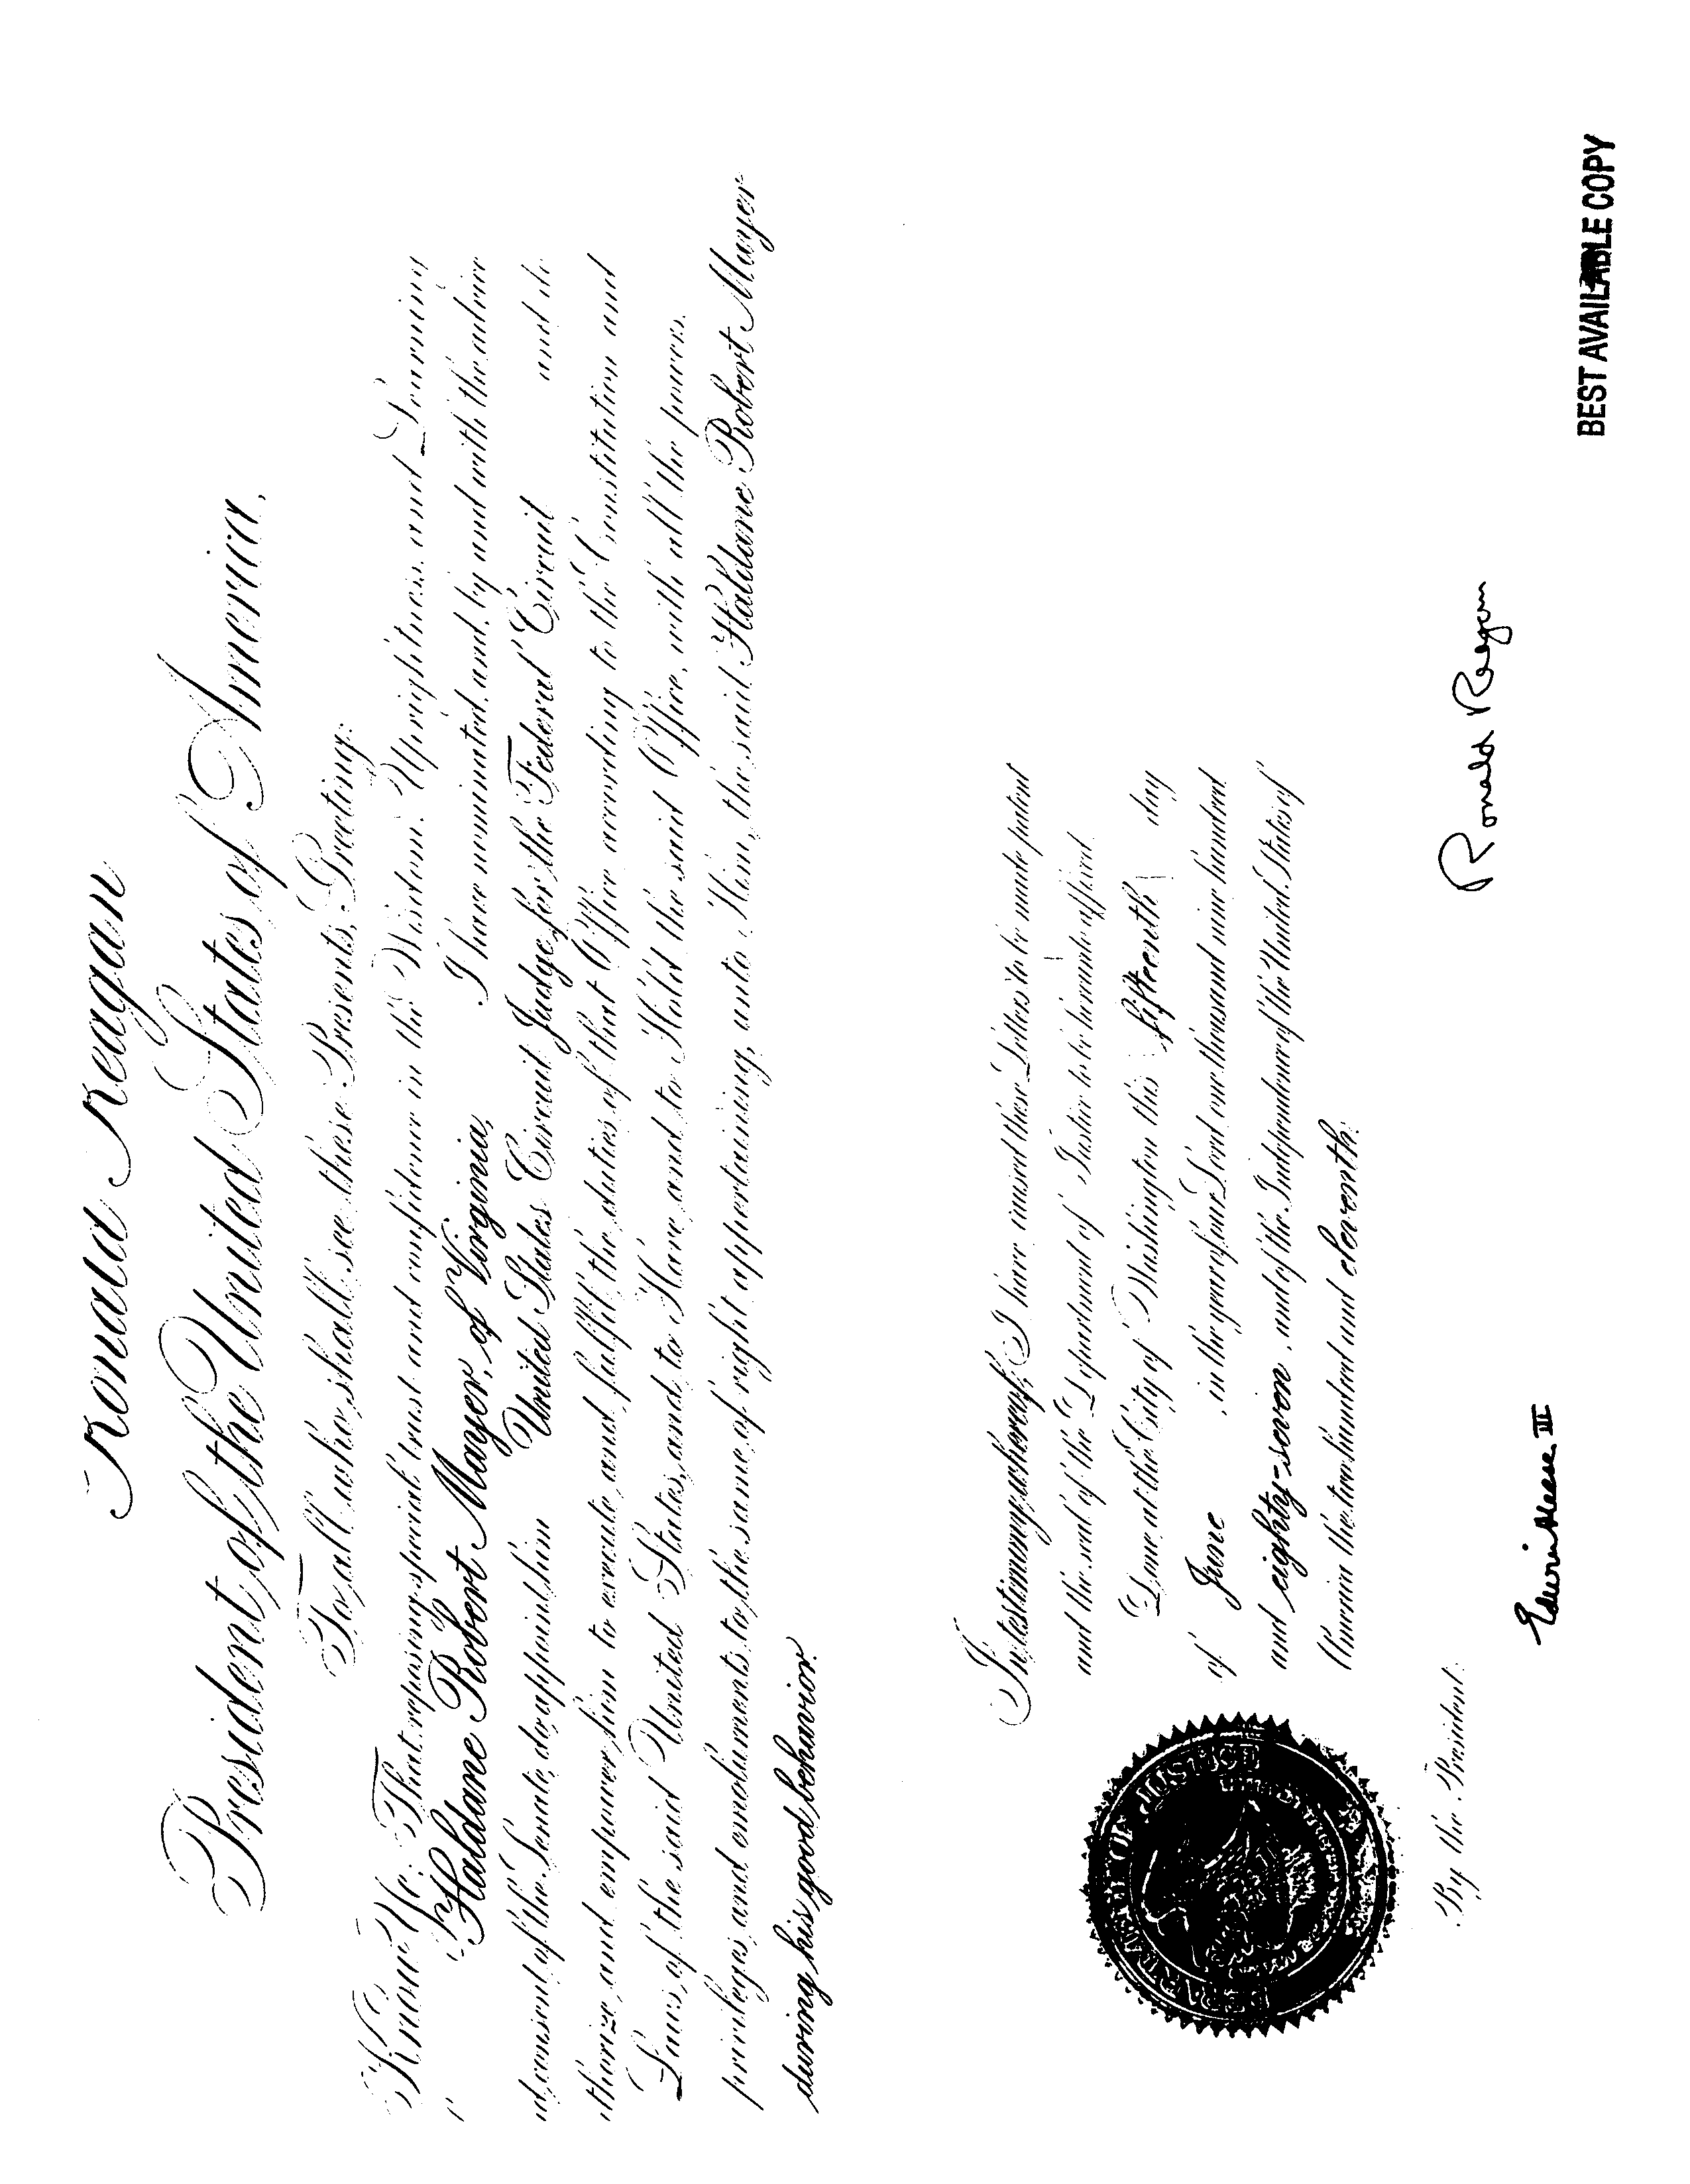 Ronald Reagan
President of the United States of America.
To all who shall see these Presents, Greeting:
Know Ye; That reposing special trust and confidence in the Wisdom, Uprightness, and Learning
Haldane Robert Mayer, of Virginia, I have nominated, and, by and with the advice
nd consent of the Senate, do appoint him United States Circuit Judge for the Federal Circuit and do
uthorize and empower him to execute and fulfil the duties of that Office according to the Constitution and
Laws of the said United States, and to Have and to Hold the said Office, with all the powers,
privileges and emoluments to the same of right appertaining, unto Him, the said Haldane Robert Mayer
during his good behavior.
In testimony whereof, I have caused these Letters to be made patent
and the seal of the Department of Justice to be hereunto affixed.
Done at the City of Washington this fifteenth day
of June, in the year of our Lord one thousand nine hundred
and eighty-seven, and of the Independence of the United States of
America the two hundred and eleventh.
DEPARTMENT OF JUSTICE
Ronald Reagan
By the President:
Edwin Meese III
BEST AVAILABLE COPY